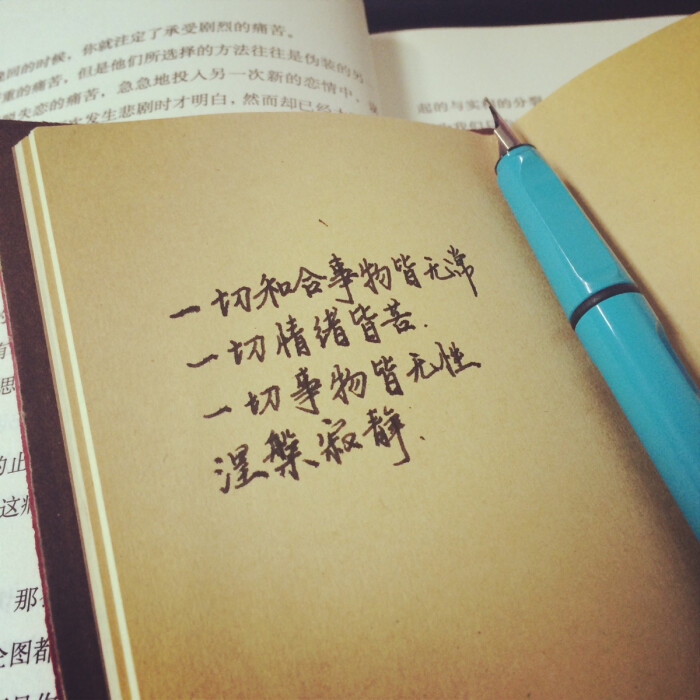 回的时候，你就注定了承受剧烈的痛苦。
重的痛苦，但是他们所选择的方法往往是伪装的另
失恋的痛苦，急急地投入另一次新的恋情中，
发生悲剧时才明白，然而却已经
起的与实
一切和合事物皆无常
一切情绪皆苦.
一切事物皆无性
涅槃寂静.
有
思
的止
这
那
全图都